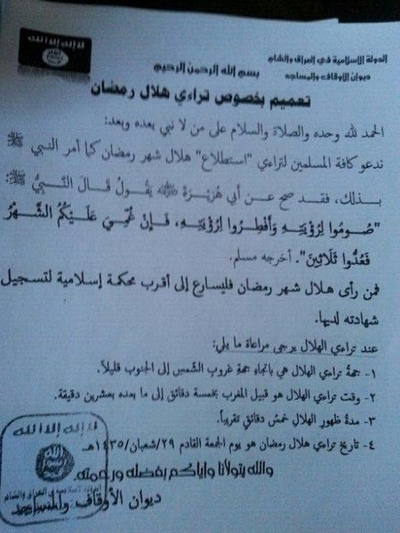 لا إله إلا الله
الدولة الإسلامية في العراق والشام
ديوان الأوقاف والمساجد
بسم الله الرحمن الرحيم
تعميم بخصوص ترائي هلال رمضان
الحمد لله وحده والصلاة والسلام على من لا نبي بعده وبعد:
ندعو كافة المسلمين لترائي "استطلاع" هلال شهر رمضان كما أمر النبي ﷺ
بذلك، فقد صح عن أبي هريرة رضي الله عنه يقول قال النبي ﷺ:
"صُومُوا لِرُؤْيَتِهِ وَأَفْطِرُوا لِرُؤْيَتِهِ، فَإِنْ غُمِّيَ عَلَيْكُمُ الشَّهْرُ
فَعُدُّوا ثَلَاثِينَ". أخرجه مسلم.
فمن رأى هلال شهر رمضان فليسارع إلى أقرب محكمة إسلامية لتسجيل
شهادته لديها.
عند ترائي الهلال يرجى مراعاة ما يلي:
١- جهة ترائي الهلال هي باتجاه جهة غروب الشمس إلى الجنوب قليلاً.
٢- وقت ترائي الهلال هو قبيل المغرب بخمسة دقائق إلى ما بعده بعشرين دقيقة.
٣- مدة ظهور الهلال خمس دقائق تقريباً.
٤- تاريخ ترائي هلال رمضان هو يوم الجمعة القادم ٢٩/شعبان/١٤٣٥هـ
والله يتولانا وإياكم بفضله ورحمته.
لا إله إلا الله
ديوان الأوقاف والمساجد